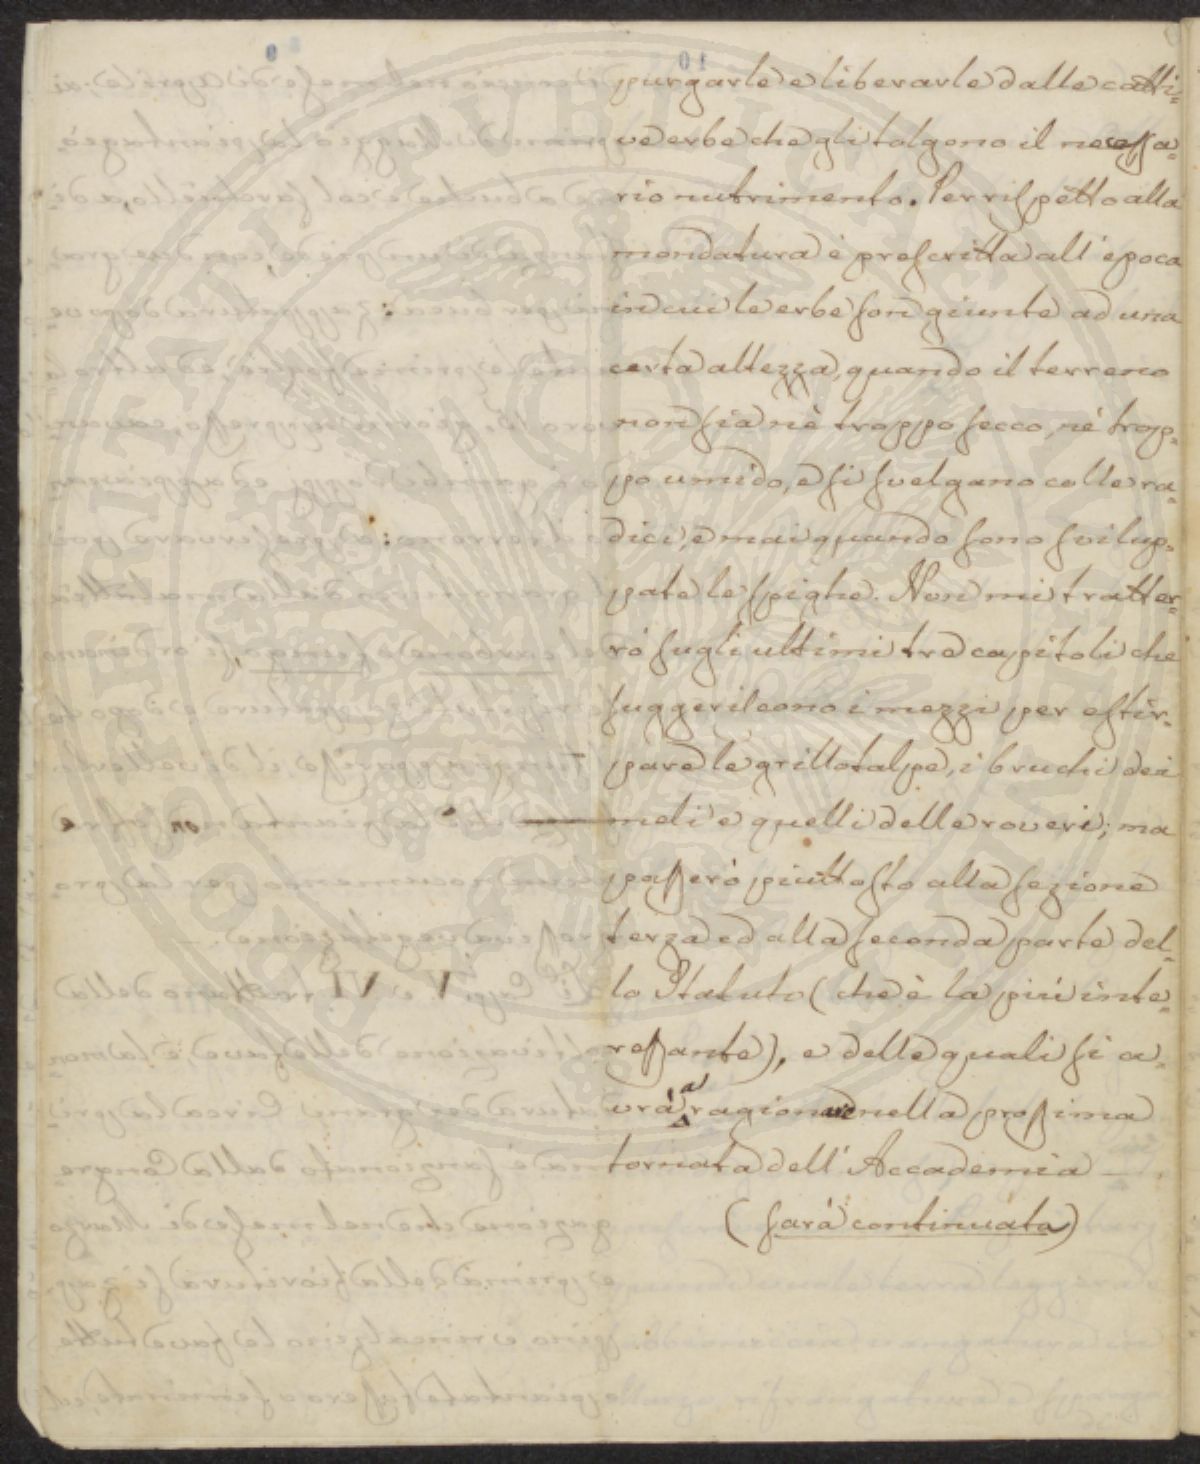 purgarle e liberarle dalle catti=
ve erbe che gli tolgono il necessa=
rio nutrimento. Per rispetto alla
mondatura è prescritta all'epoca
in cui le erbe son giunte ad una
certa altezza, quando il terreno
non sia nè troppo secco, nè trop=
po umido, e si svelgano colle ra=
dici, e mai quando sono svilup=
pate le spighe. Non mi tratter=
rò sugli ultimi tre capitoli che
suggeriscono i mezzi per estir=
pare le grillotalpe, i bruchi dei
meli e quelli delle roveri; ma
passerò piuttosto alla sezione
terza ed alla seconda parte del=
lo Statuto (che è la più inte=
ressante), e delle quali si a=
vrà a ragionare nella prossima
tornata dell'Accademia —
(sarà continuata)